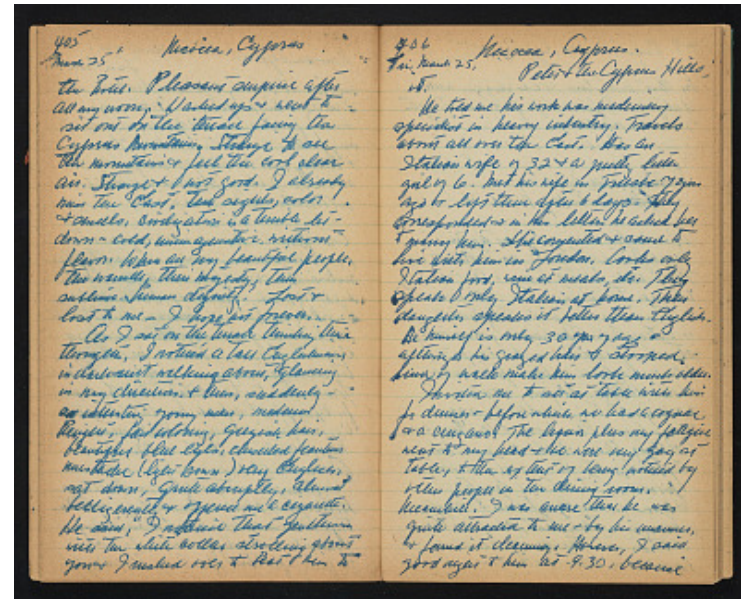 405 Nicosia, Cyprus
March 25
the Hotel. Pleasant surprise after
all my worry. Washed up & went to
sit out on the terrace facing the
Cyprus Mountains. Strange to see
the mountains & feel the cool clear
air. Strange & not good. I already
miss the East, the sights, color
& smells. Civilization is a terrible let-
down – cold, unimaginative, without
flavor. Where are my beautiful people,
the warmth, their majesty, their
sublime human dignity. Lost &
lost to me – I hope not forever.
As I sat on the terrace thinking these
thoughts, I noticed a tall Englishman
in dark suit walking above, & glancing
in my direction & then, suddenly –
an interesting young man, medium
height, fair coloring, greyish hair,
beautiful blue eyes, chiseled features
mustache (light brown) very English,
sat down, quite abruptly, almost
belligerently & offered me a cigarette.
He said, "I notice that gentleman
with the white collar strolling about
you & I rushed over to beat him to
406 Nicosia, Cyprus.
Fri. March 25, Peter & the Cyprus Hills,
it.
He told me his work was
specialist in heavy industry. Travels
about all over the East. Has an
Italian wife of 32 & a pretty little
girl of 6. Met his wife in Trieste 7 years
ago & left there after 6 days. They
corresponded & in his letters he asked her
to marry him. She consented & came to
live with him in London. Cooks only
Italian food, wine at meals, etc. They
speak only Italian at home. Their
daughter speaks it better than English.
He himself is only 30 years of age &
although his greyed hair & stooped
kind of walk make him look much older.
Invited me to sit at table with him
for dinner – before which we had cognac
& a cinzano. The liquor plus my fatigue
went to my head & we were very gay at
table, to the extent of being noticed by
other people in the dining room.
Meanwhile I was aware that he was
quite attracted to me & by his manner,
& found it charming. However, I said
good night to him at 9:30, because